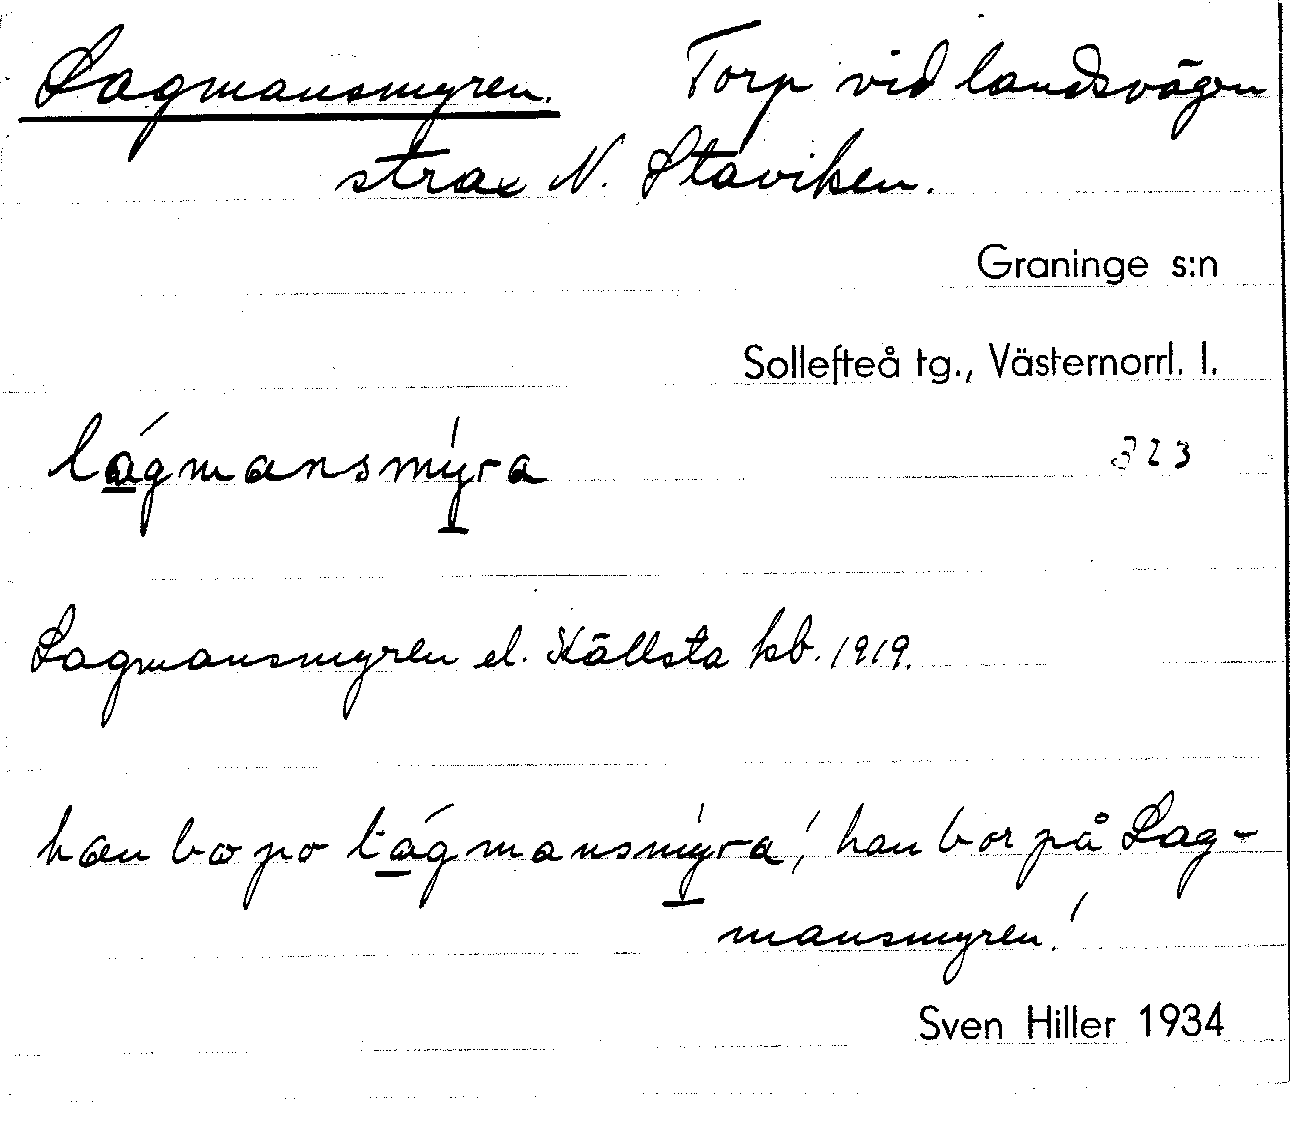 Lagmansmyren. Torp vid landsvägen
strax N. Staviken.
Graninge s:n
Sollefteå tg., Västernorrl. l.
lágmansmýra 323
Lagmansmyren el. Källsta kb. 1919.
han bo po lágmansmýra / han bor på Lag-
mansmyren. /
Sven Hiller 1934